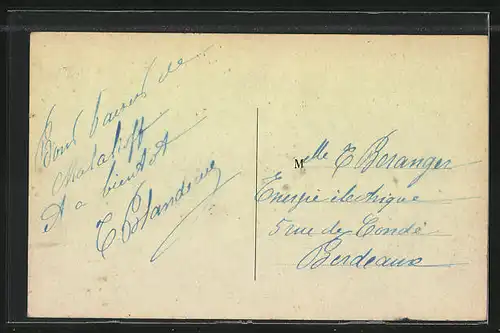 Bons baisers de
Malakoff
A a bientot
Mlle C Beranger
Energie électrique
5 rue de Condé
Bordeaux